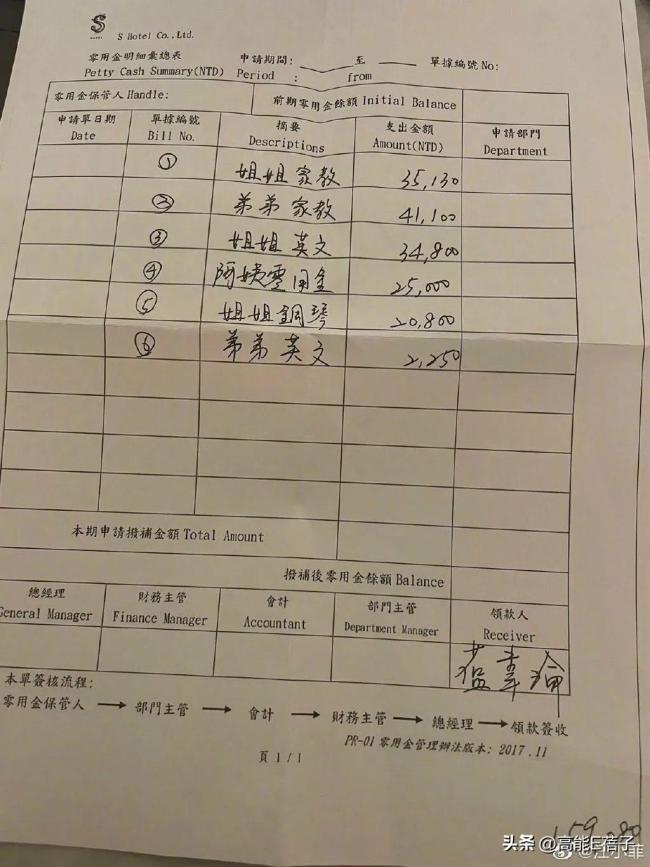 S
S Hotel Co.,Ltd.
零用金明細彙總表 申請期間: 至 單據編號 No:
Petty Cash Summary(NTD) Period : from
零用金保管人 Handle: 前期零用金餘額 Initial Balance
申請單日期 單據編號 摘要 支出金額 申請部門
Date Bill No. Descriptions Amount(NTD) Department
① 姐姐家教 35,130
② 弟弟家教 41,100
③ 姐姐英文 34,800
④ 阿姨零用金 25,000
⑤ 姐姐鋼琴 20,800
⑥ 弟弟英文 2,250
本期申請撥補金額 Total Amount
撥補後零用金餘額 Balance
總經理 財務主管 會計 部門主管 領款人
General Manager Finance Manager Accountant Department Manager Receiver
本單簽核流程:
零用金保管人 → 部門主管 → 會計 → 財務主管 → 總經理 → 領款簽收
PR-01 零用金管理辦法版本: 2017.11
頁 1/1
头条 @高能E蓓子